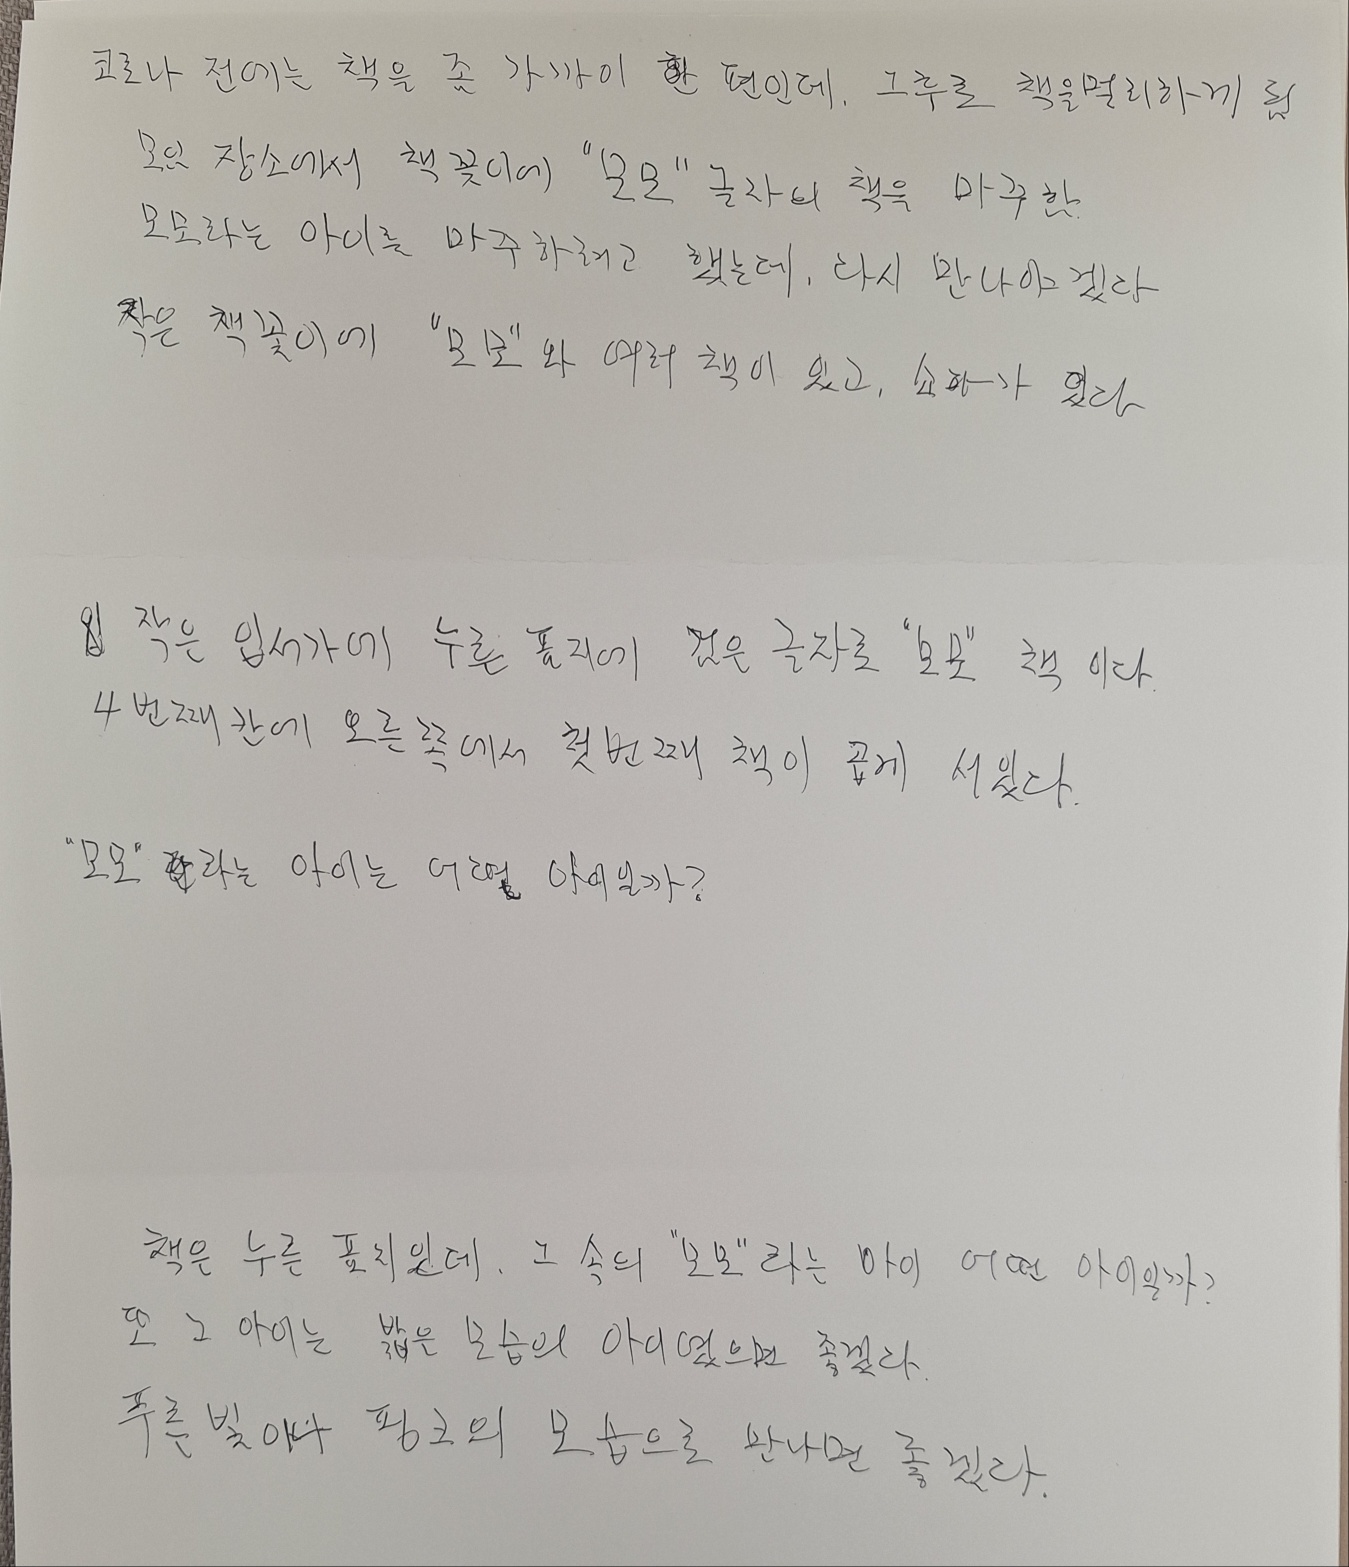 코로나 전에는 책을 좀 가까이 한 편인데, 그후로 책을멀리하게 됨
모인 장소에서 책꽂이에 "모모" 글자의 책을 마주함.
모모라는 아이를 마주하려고 했는데, 다시 만나야겠다
작은 책꽂이에 "모모"와 여러 책이 있고, 쇼파가 있다
작은 입서가에 누른 표지에 검은 글자로 "모모" 책 이다.
4번째칸에 오른쪽에서 첫번째 책이 곱게 서있다.
"모모" 라는 아이는 어떤 아이일까?
책은 누른 표지인데, 그 속의 "모모"라는 아이 어떤 아이일까?
또 그 아이는 밝은 모습의 아이였으면 좋겠다.
푸른빛이나 핑크의 모습으로 만나면 좋겠다.